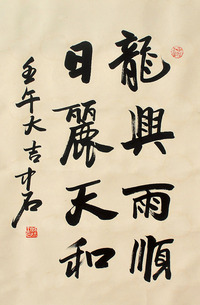 龍興雨順
日麗天和
壬午大吉中石